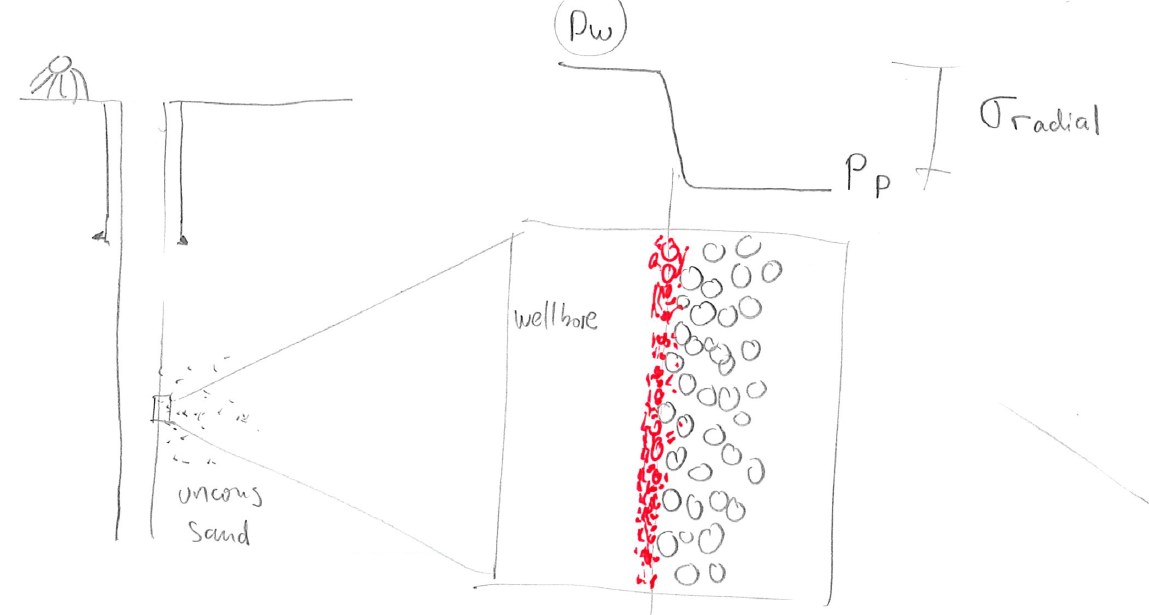 Pw
σradial
Pp
wellbore
uncons
sand